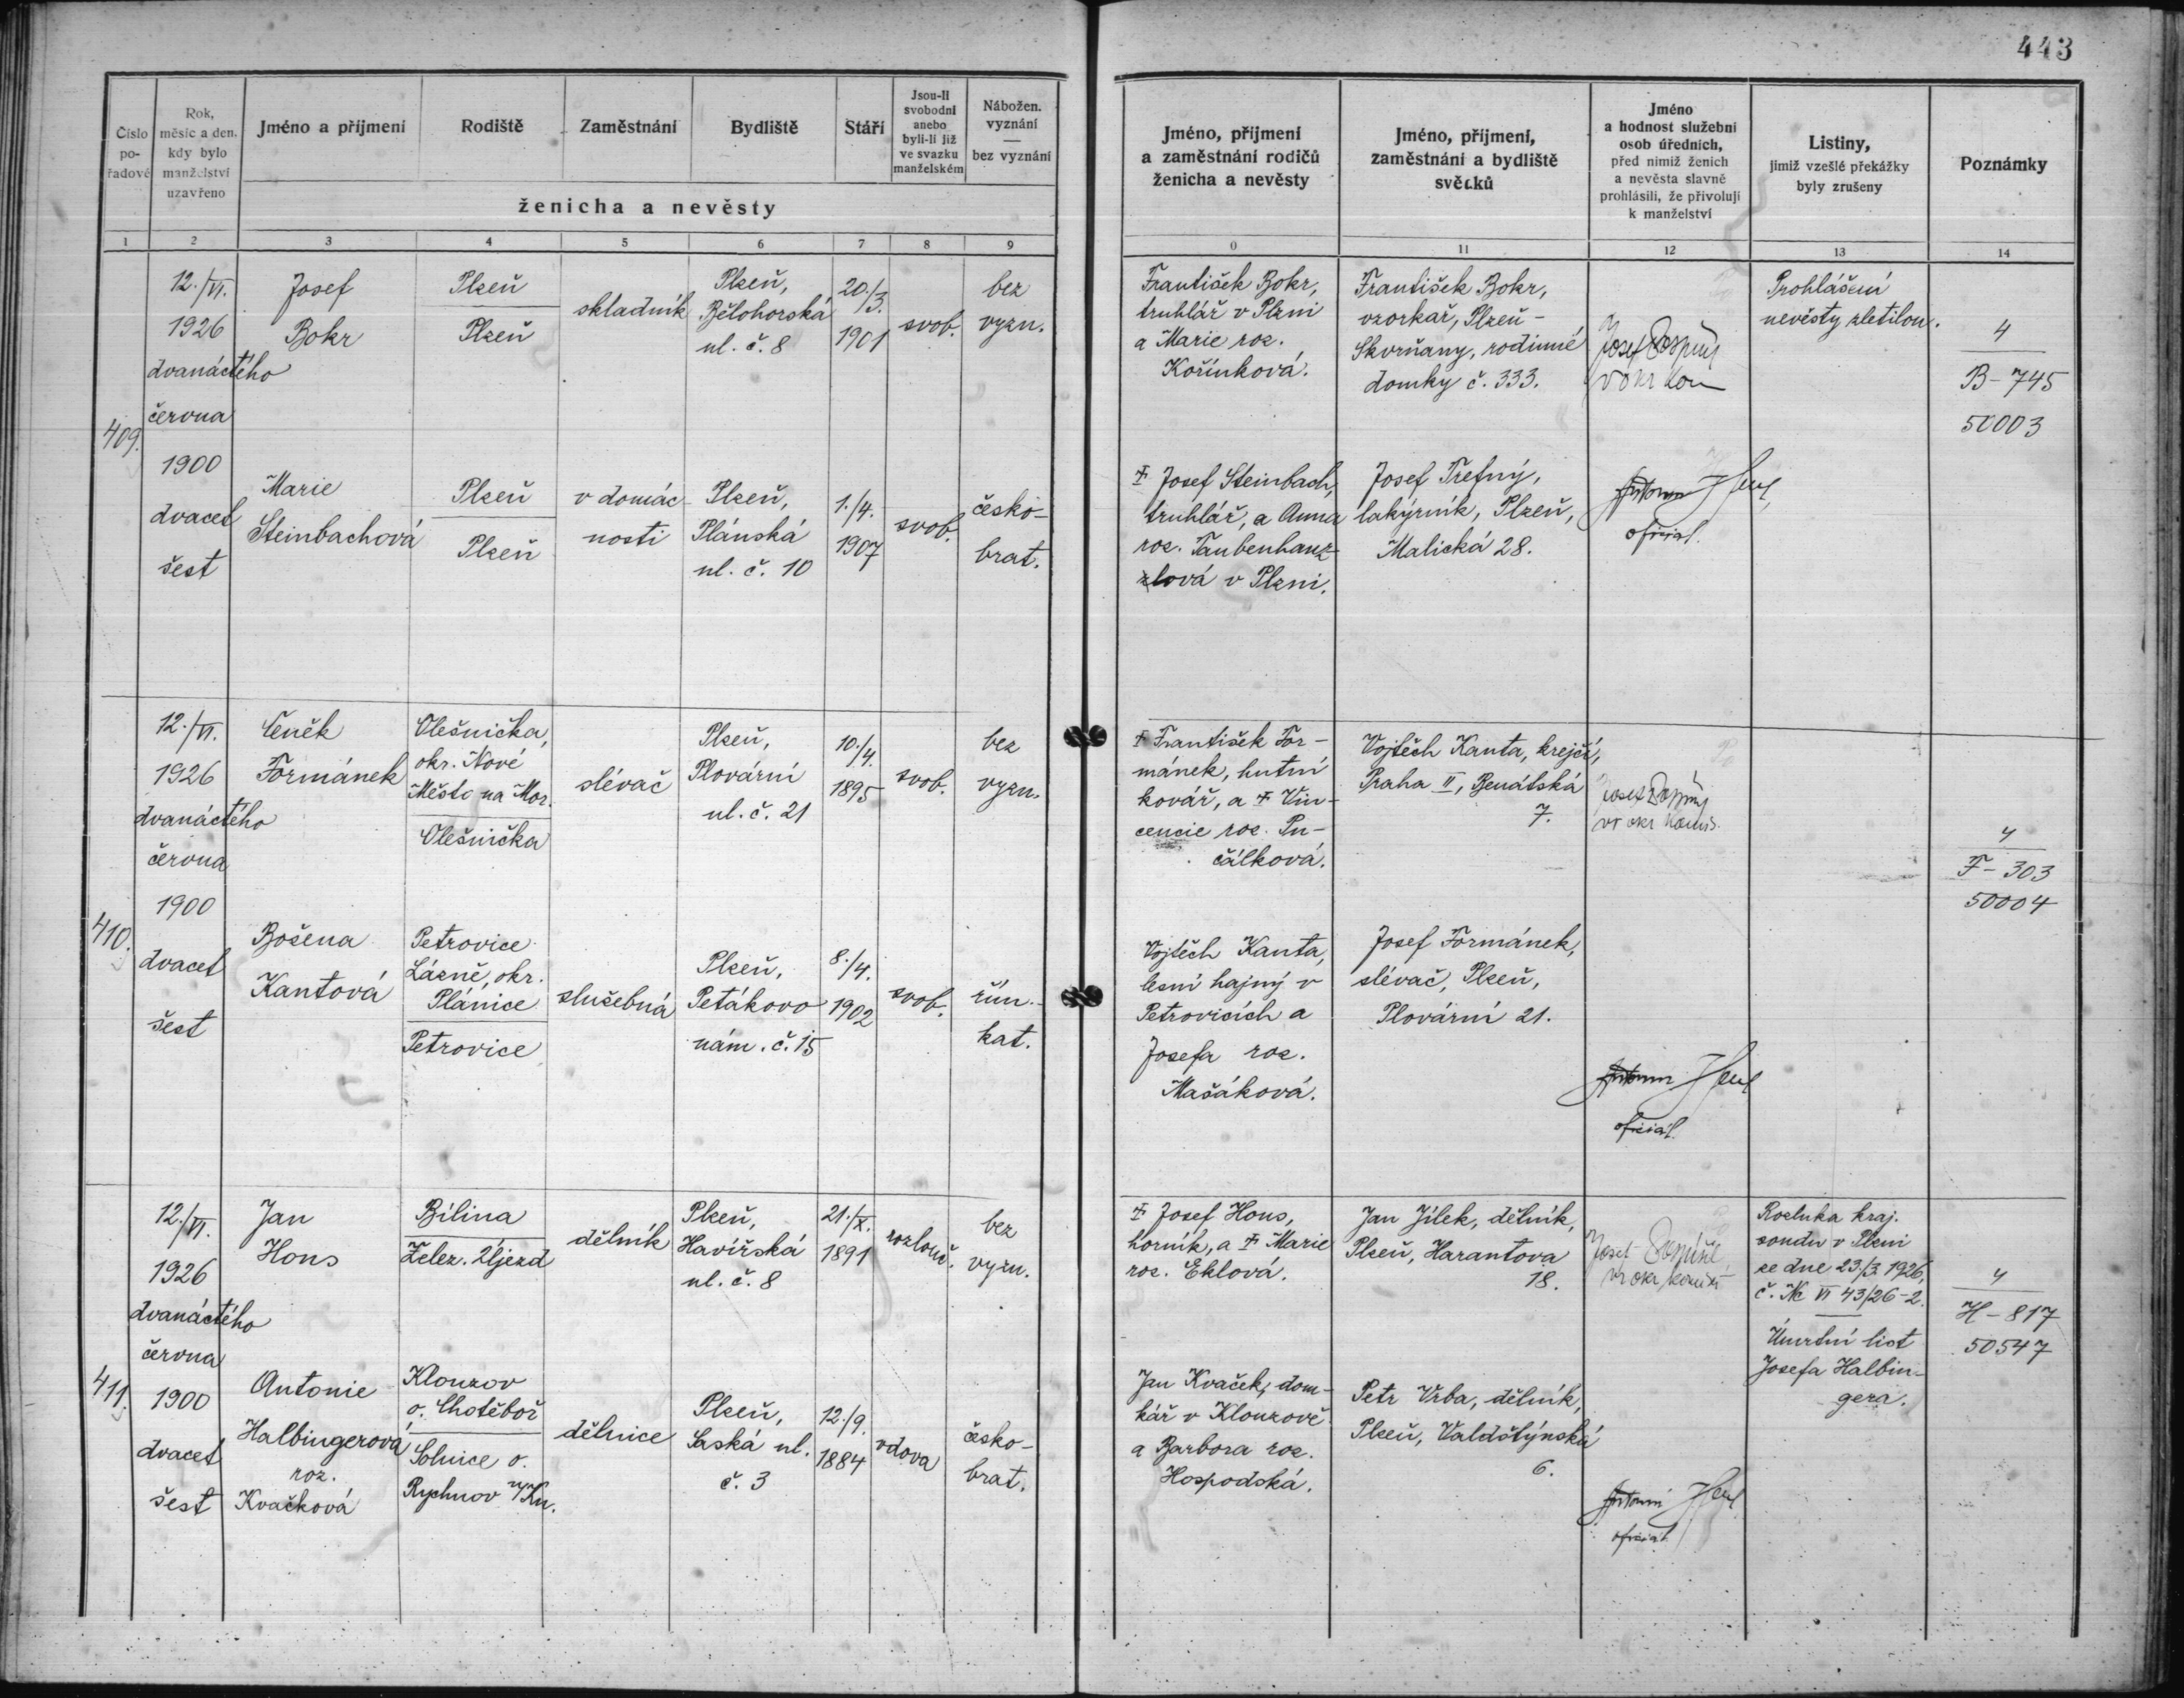 443
Číslo po-řadové
Rok, měsíc a den, kdy bylo manželství uzavřeno
Jméno a příjmení
Rodiště
Zaměstnání
Bydliště
Stáří
Jsou-li svobodni anebo byli-li již ve svazku manželském
Nábožen. vyznání — bez vyznání
ženicha a nevěsty
Jméno, příjmení a zaměstnání rodičů ženicha a nevěsty
Jméno, příjmení, zaměstnání a bydliště svědků
Jméno a hodnost služební osob úředních, před nimiž ženich a nevěsta slavně prohlásili, že přivolují k manželství
Listiny, jimiž vzešlé překážky byly zrušeny
Poznámky
1 2 3 4 5 6 7 8 9 0 11 12 13 14
409.
12./VI.
1926
dvanáctého
června
1900
dvacet
šest
Josef
Bokr
Plzeň
Plzeň
skladník
Plzeň,
Bělohorská
ul. č. 8
20./3.
1901
svob.
bez
vyzn.
František Bokr,
truhlář v Plzni
a Marie roz.
Kořínková.
František Bokr,
vzorkař, Plzeň-
Skvrňany, rodinné
domky č. 333.
Josef
Prohlášení
nevěsty zletilou.
4
B-745
50003
Marie
Steinbachová
Plzeň
Plzeň
v domác-
nosti
Plzeň,
Plánská
ul. č. 10
1./4.
1907
svob.
česko-
brat.
Ŧ Josef Steinbach,
truhlář, a Anna
roz. Taubenhanz-
zlová v Plzni.
Josef Trefný,
lakýrník, Plzeň,
Malická 28.
Antonín
oficiál.
410.
12./VI.
1926
dvanáctého
června
1900
dvacet
šest
Čeněk
Formánek
Olešnička,
okr. Nové
Město na Mor.
Olešnička
slévač
Plzeň,
Plovární
ul. č. 21
10./4.
1895
svob.
bez
vyzn.
Ŧ František For-
mánek, hutní
kovář, a Ŧ Vin-
cencie roz. Pu-
čálková.
Vojtěch Kanta, krejčí,
Praha II, Benátská
7.
Josef
4
F-303
50004
Božena
Kantová
Petrovice
Lázně, okr.
Plánice
Petrovice
služebná
Plzeň,
Petákovo
nám. č. 15
8./4.
1902
svob.
řím.-
kat.
Vojtěch Kanta,
lesní hajný v
Petrovicích a
Josefa roz.
Mašáková.
Josef Formánek,
slévač, Plzeň,
Plovární 21.
Antonín
oficiál.
411.
12./VI.
1926
dvanáctého
června
1900
dvacet
šest
Jan
Hons
Bílina
Želez. Újezd
dělník
Plzeň,
Havířská
ul. č. 8
21./X.
1891
rozlouč.
bez
vyzn.
Ŧ Josef Hons,
horník, a Ŧ Marie
roz. Eklová.
Jan Jílek, dělník,
Plzeň, Harantova
18.
Josef
Rozluka kraj.
soudu v Plzni
ze dne 23./3. 1926,
č. Nc VI 43/26-2.
Úmrtní list
Josefa Halbin-
gera.
4
H-817
50547
Antonie
Halbingerová
roz.
Kvačková
Klouzov
o. Chotěboř
Solnice o.
Rychnov n/Kn.
dělnice
Plzeň,
Saská ul.
č. 3
12./9.
1884
vdova
česko-
brat.
Jan Kvaček, dom-
kář v Klouzově
a Barbora roz.
Hospodská.
Petr Vrba, dělník,
Plzeň, Valdštýnská
6.
Antonín
oficiál